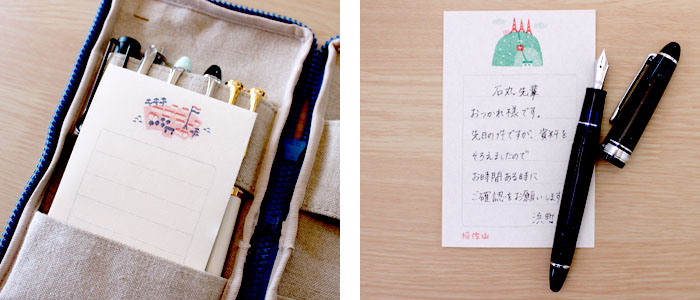 石丸先輩
おつかれ様です。
先日の件ですが、資料を
そろえましたので
お時間ある時に
ご確認をお願いします
浜町
稲佐山